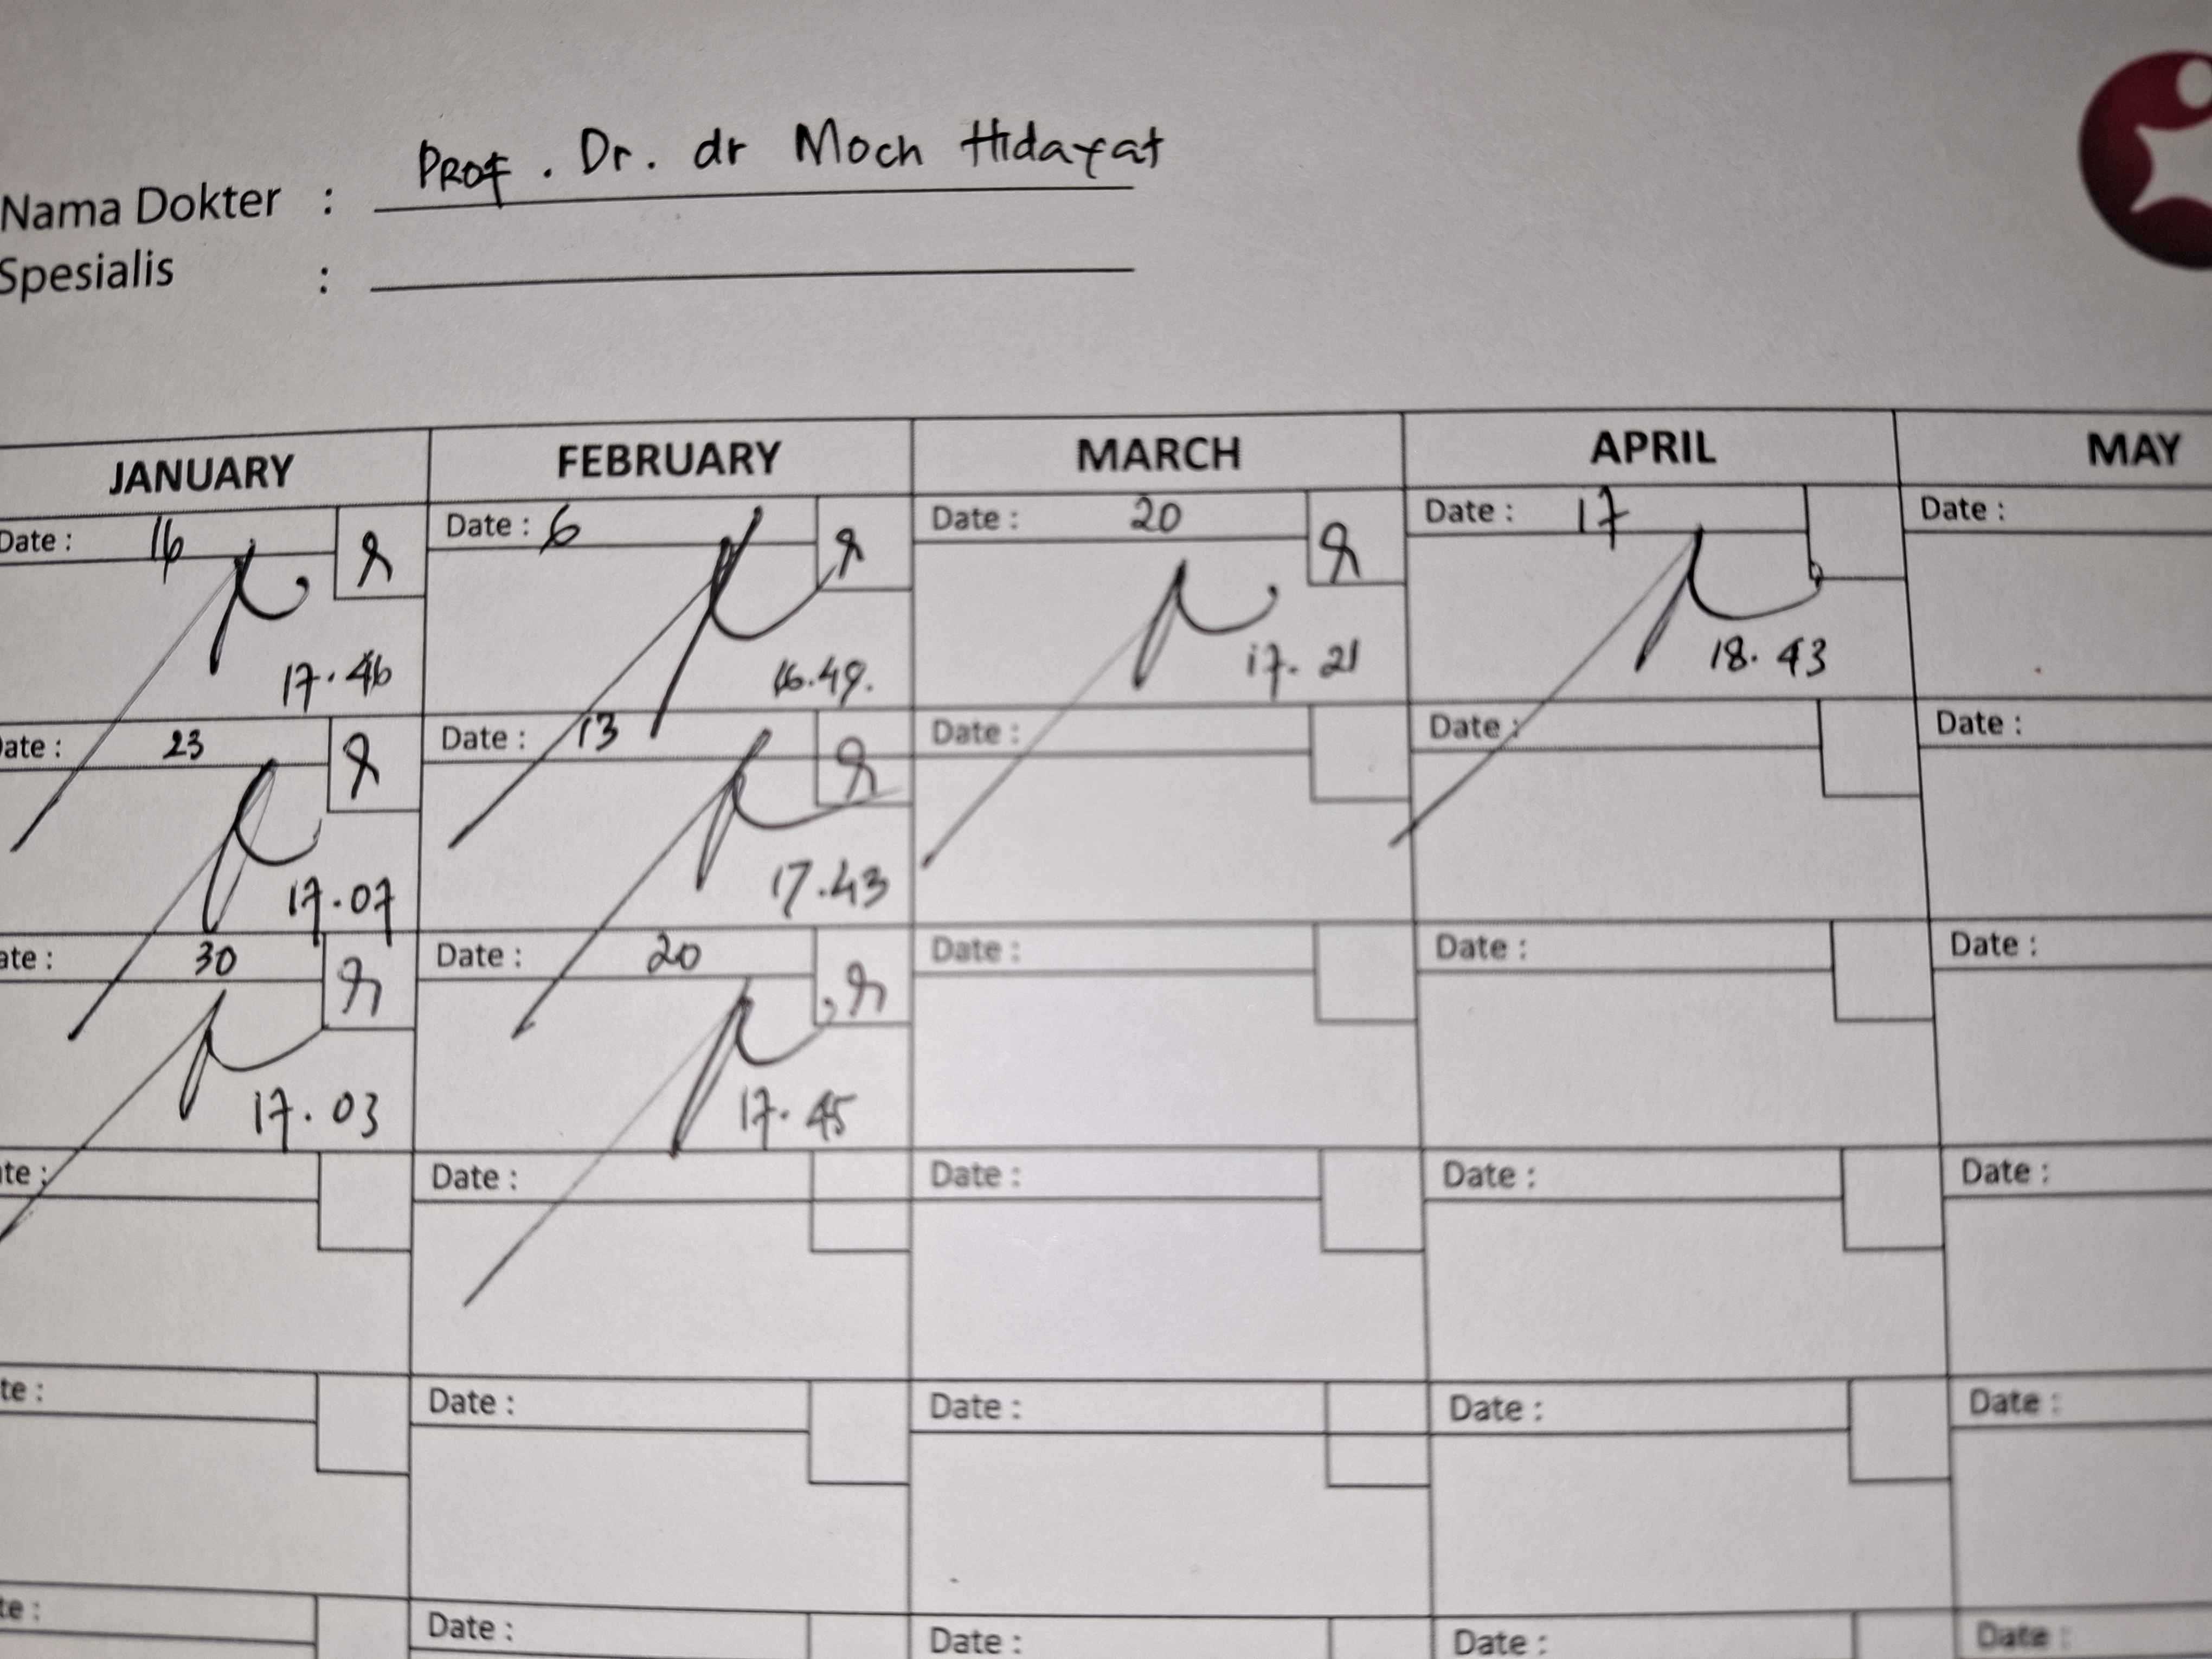 Nama Dokter : Prof. Dr. dr Moch Hidayat
Spesialis :
JANUARY FEBRUARY MARCH APRIL MAY
Date : 16 Date : 6 Date : 20 Date : 17 Date :
17.46 16.49. 17.21 18.43
ate : 23 Date : 13 Date : Date : Date :
17.07 17.43
ate : 30 Date : 20 Date : Date : Date :
17.03 17.45
te : Date : Date : Date : Date :
te : Date : Date : Date : Date :
te : Date : Date : Date : Date :